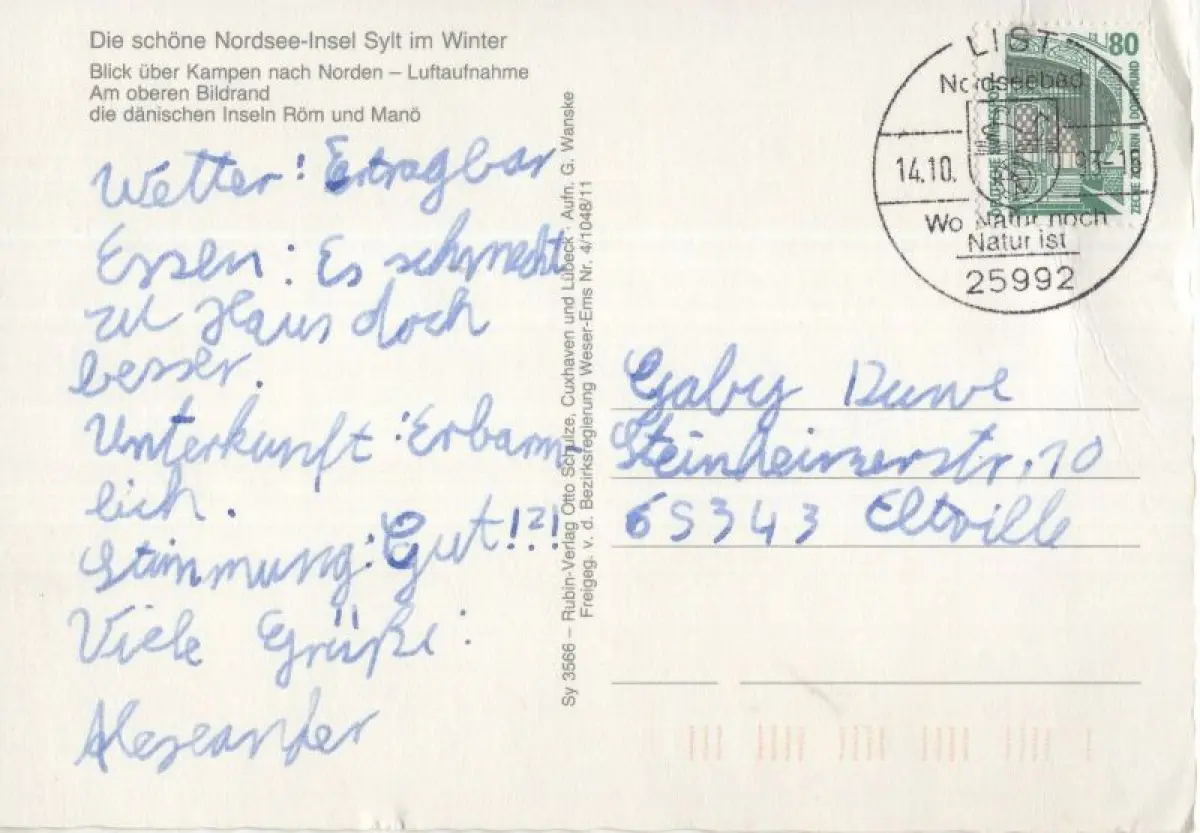 Die schöne Nordsee-Insel Sylt im Winter
Blick über Kampen nach Norden – Luftaufnahme
Am oberen Bildrand
die dänischen Inseln Röm und Manö
Wetter: Ertragbar
Essen: Es schmeckt
zu Haus doch
besser.
Unterkunft: Erbarm
lich.
Stimmung: Gut!?!
Viele Grüße:
Alexander
Sy 3566 – Rubin-Verlag Otto Schulze, Cuxhaven und Lübeck · Aufn. G. Wanske
Freigeg. v. d. Bezirksregierung Weser-Ems Nr. 4/1048/11
LIST
Nordseebad
14.10.93-18
Wo Natur noch
Natur ist
25992
80
DEUTSCHE BUNDESPOST
ZECHE ZOLLERN II DORTMUND
Gaby Duwe
Steinheimerstr. 10
65343 Eltville